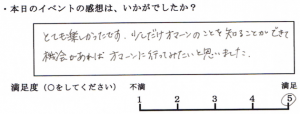 ・本日のイベントの感想は、いかがでしたか？
とても楽しかったです。少しだけオマーンのことを知ることができて
機会があればオマーンに行ってみたいと思いました。
満足度（○をしてください） 不満 満足
1 2 3 4 5